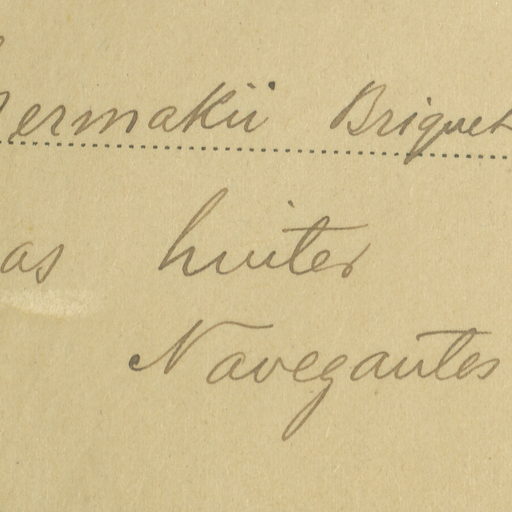 ermakii Briquet
as
Navegantes